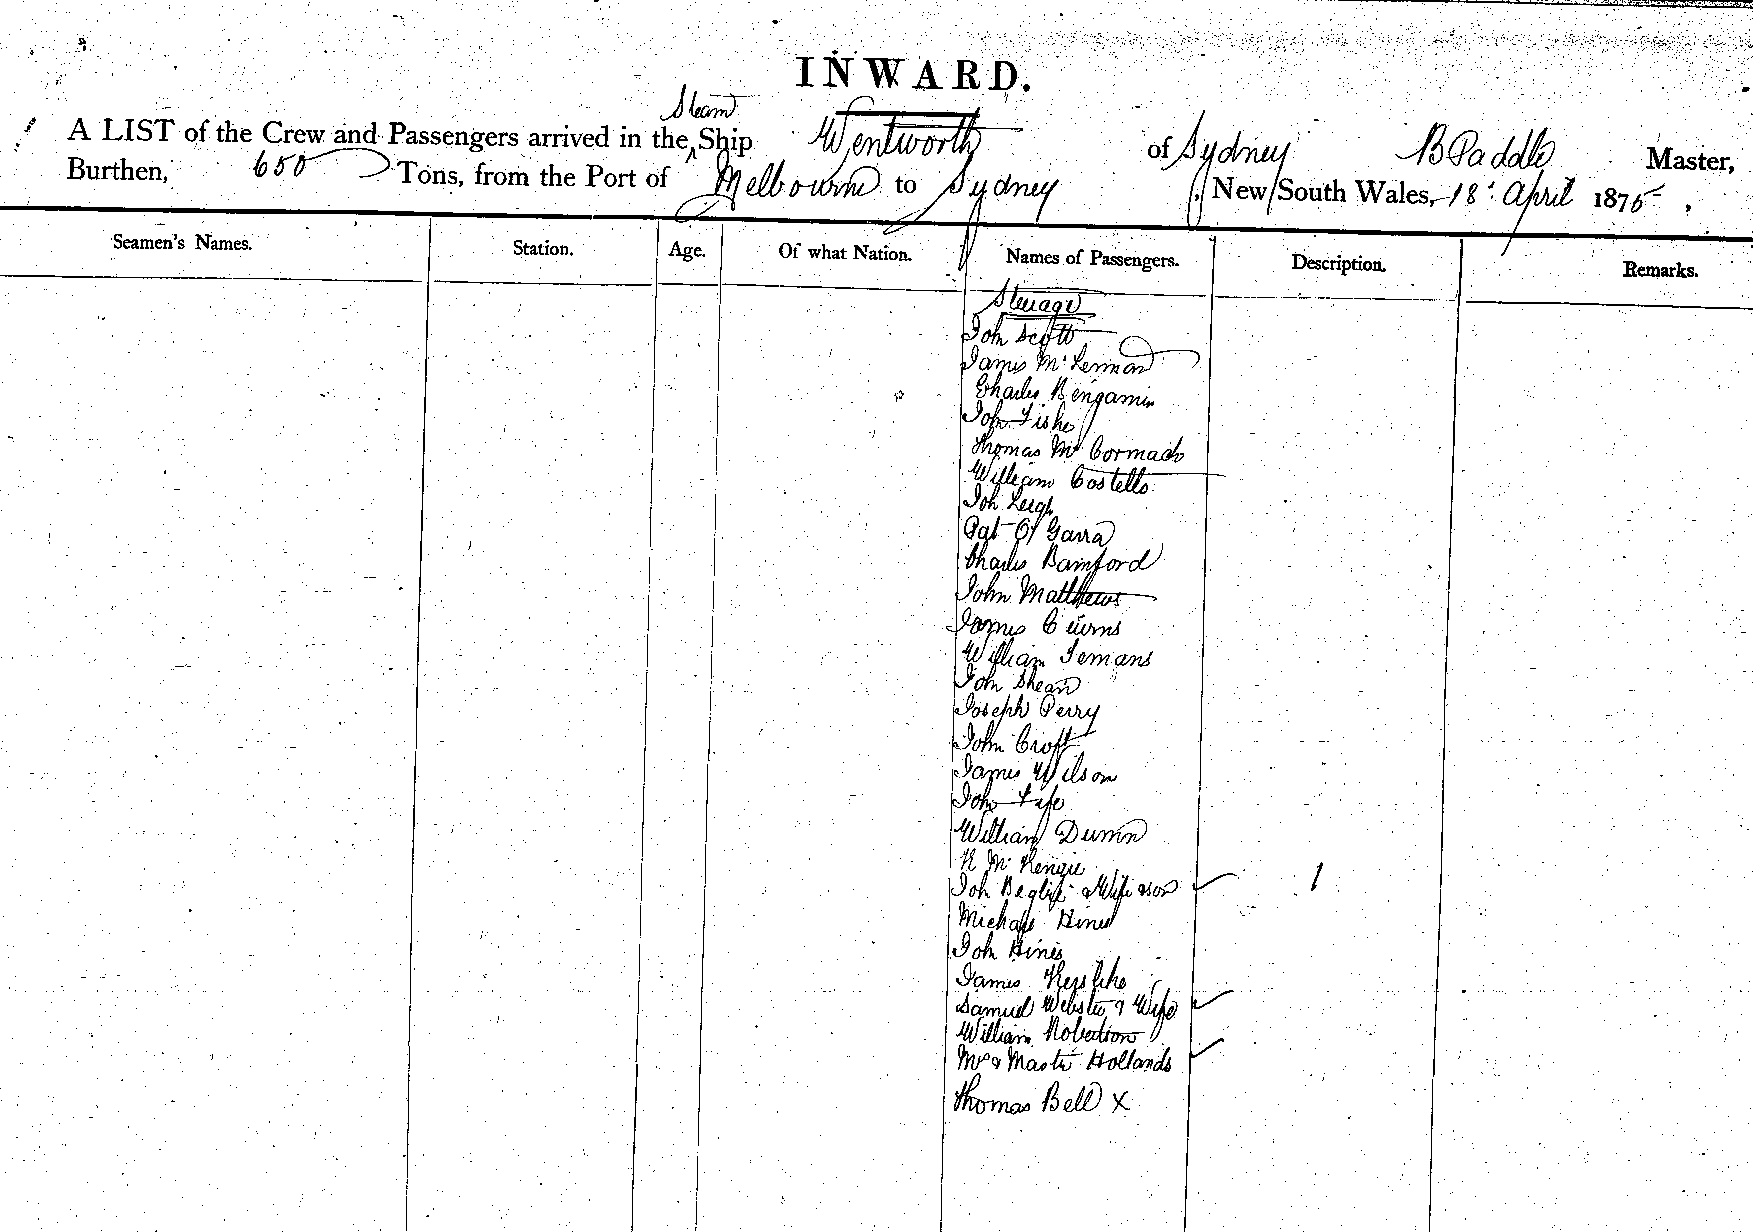 INWARD.
Steam
A LIST of the Crew and Passengers arrived in the ^ Ship Wentworth of Sydney B Paddle Master,
Burthen, 650 Tons, from the Port of Melbourne to Sydney New South Wales, 18: April 1875,
Seamen's Names. Station. Age. Of what Nation. Names of Passengers. Description. Remarks.
Steerage
Joh Scott
James Mc Lennan
Charles Bengamin
Joh
Thomas Mc Cormack
William Costello
Joh Leigh
Pat O' Garra
Charles Bamford
John Matthews
James Cuirns
William Temans
Joh Shean
Joseph Perry
John Croft
James Wilson
Joh Fife
William Dunn
K Mc Kenzie
Joh & Wife & son 1
Michael Hines
Joh Hines
James
Samuel Webster & Wife
William Robertson
Mrs & Master Hollands
Thomas Bell X